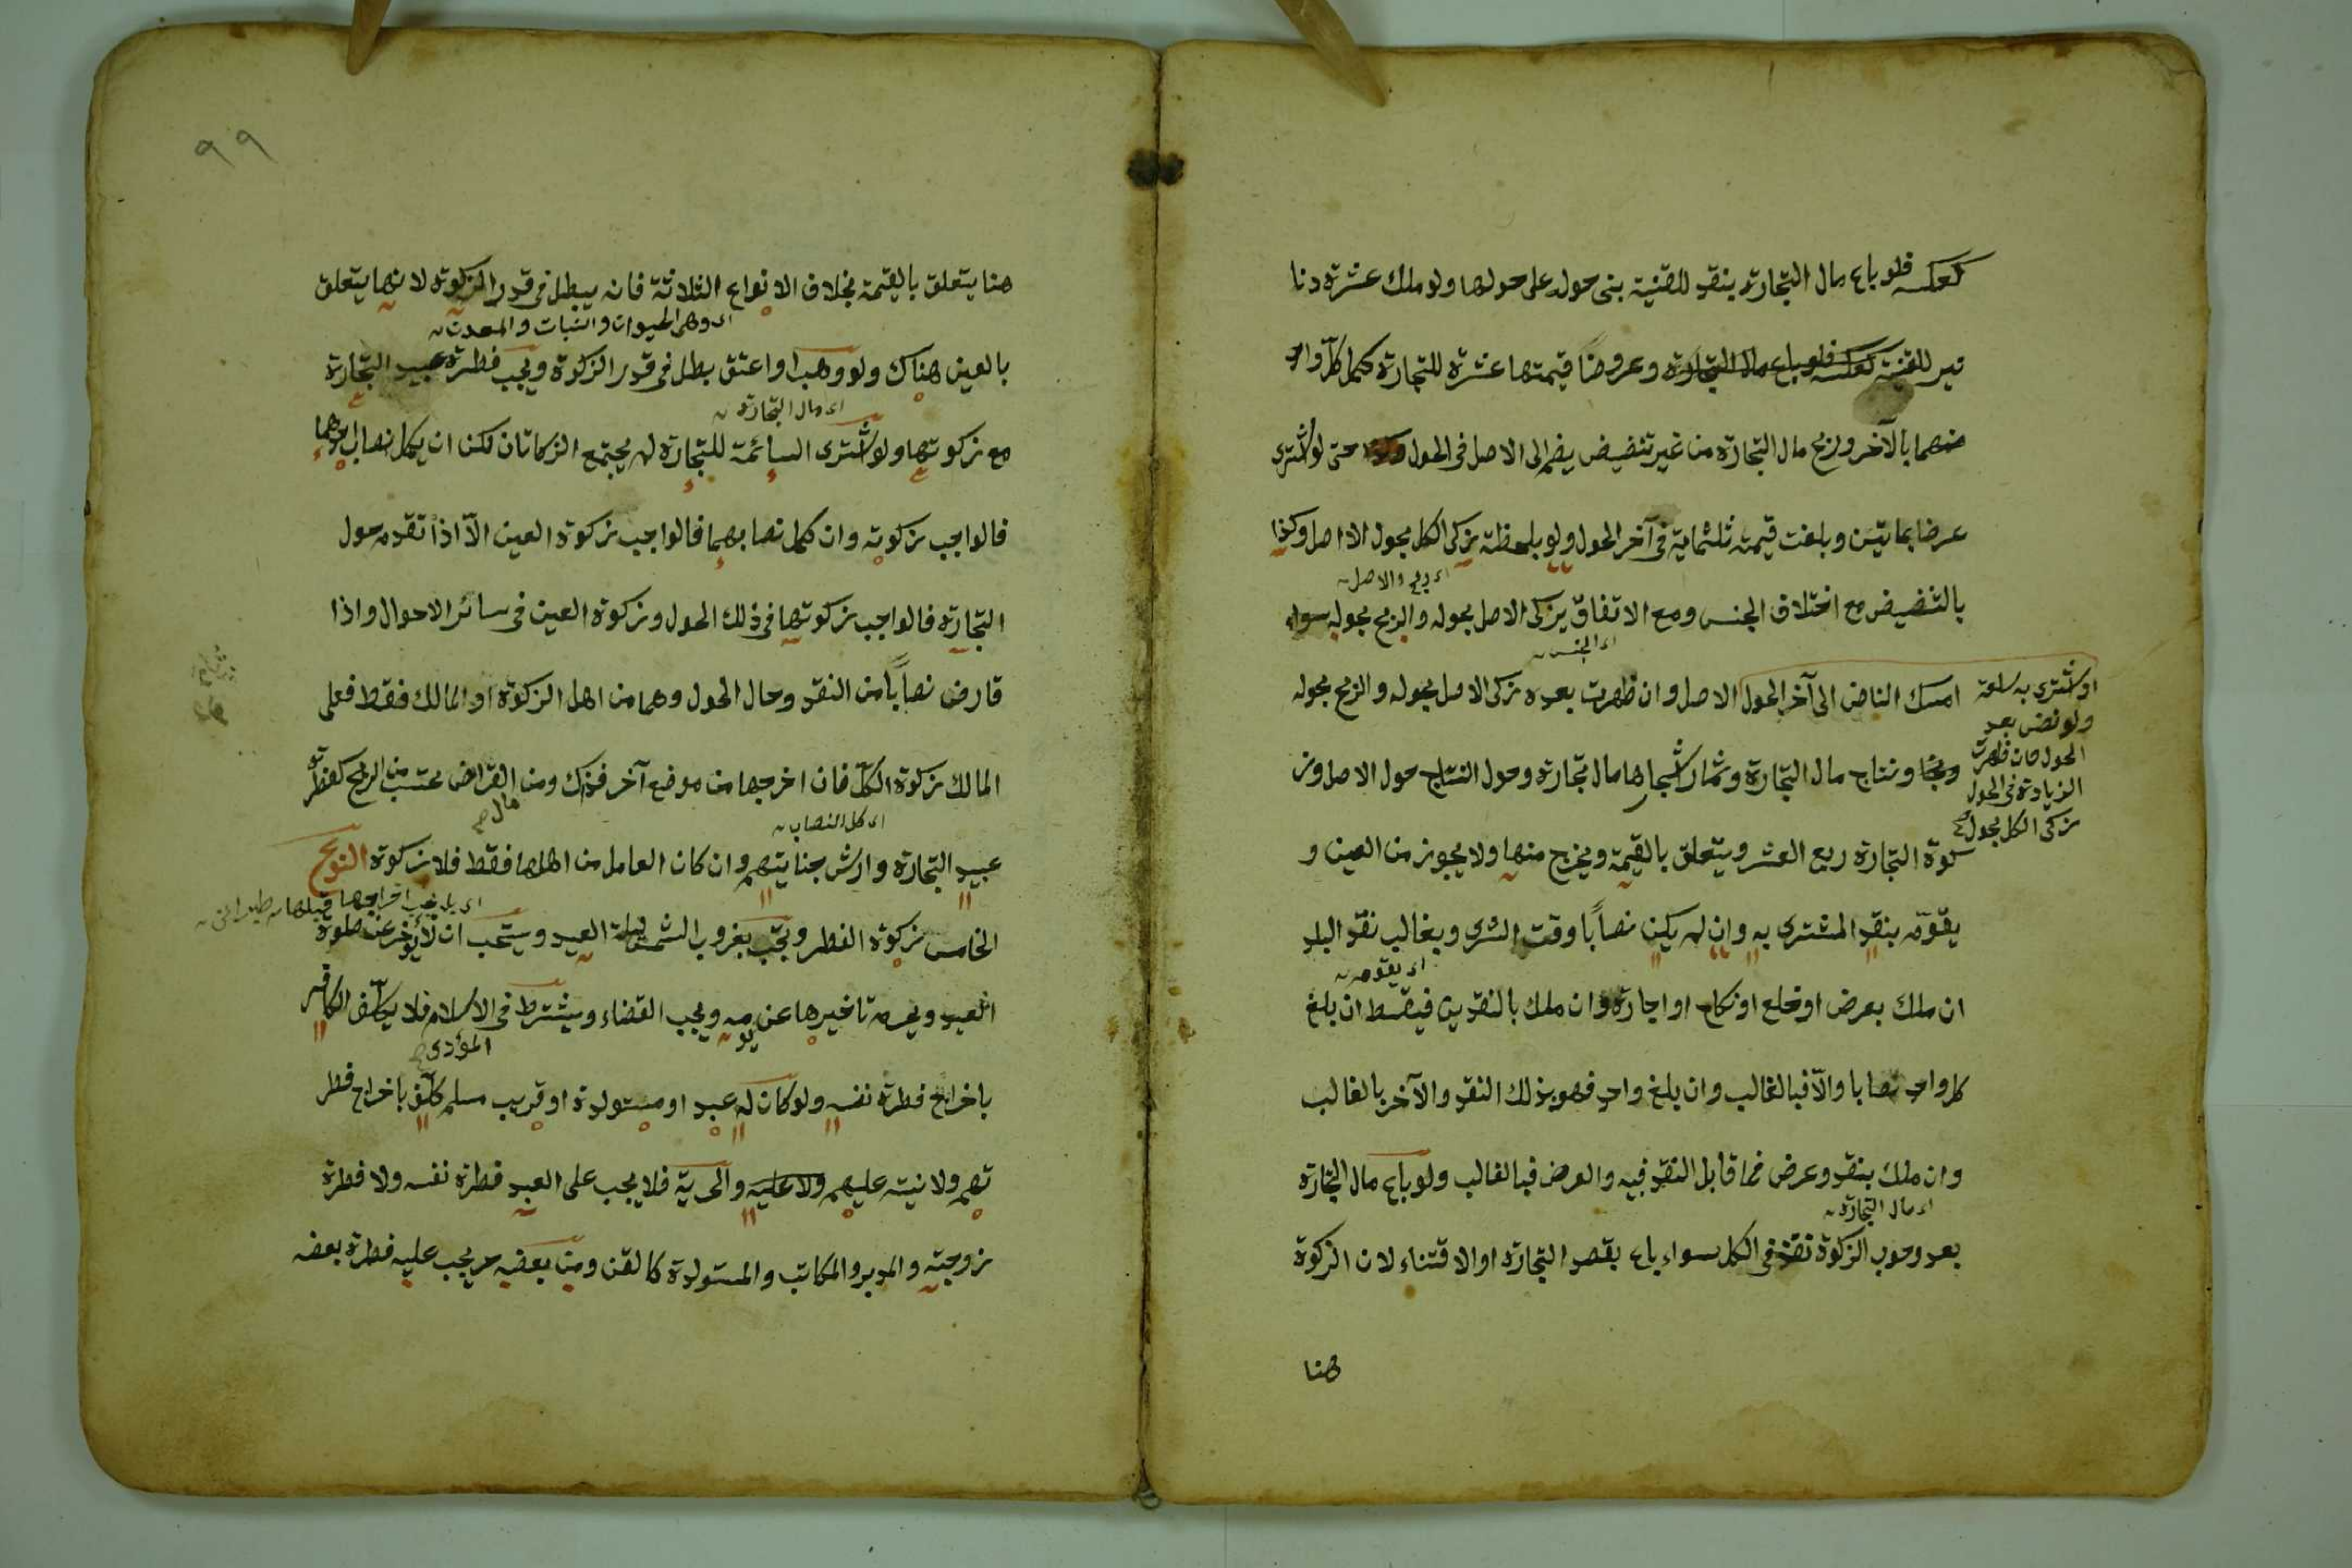 كعكسه فلو باع مال التجارة بنقد للقنية بنى حوله على حولها ولو ملك عشرة دنا
نير للقنية كعكسه فلو باع مال التجارة وعروضًا قيمتها عشرة للتجارة كمل كلّ واحد
منهما بالآخر وربح مال التجارة من غير تنضيض يضم الى الاصل فى الحول حتى لو اشترى
عرضا بمائتين وبلغت قيمته ثلثماية فى آخر الحول ولو بلحظة يزكى الكل بحول الااصل وكذا
بالتنضيض مع اختلاف الجنس ومع الاتفاق يزكى الاصل بحوله والربح بحوله سواء
اى ربح والاصل
اى الجنس
امسك الناض الى آخر الحول الاصل وان ظهرت بعده زكى الاصل بحوله والربح بحوله
او اشترى به سلعة
ولو نض بعد
الحول فان ظهرت
الزيادة فى الحول
زكى الكل بحول
ونتاج مال التجارة وثمار اشجارها مال تجارة وحول النتاج حول الاصل وز
كوة التجارة ربع العشر ويتعلق بالقيمة ويخرج منها ولا يجوز من العين و
يقوّم بنقد المشترى به وان لم يكن نصابًا وقت الشرى وبغالب نقد البلد
اى يقومه
ان ملك بعرض او خلع او نكاح او اجارة وان ملك بالنقدين فيقسط ان بلغ
كل واحد نصابا والّا فبالغالب وان بلغ واحد فهو بذلك النقد والآخر بالغالب
وان ملك بنقد وعرض فما قابل النقد فبه والعرض فبالغالب ولو باع مال التجارة
اى مال التجارة
بعد وجوب الزكوة نفذ فى الكل سواء باع بقصد التجارة او الاقتناء لان الزكوة
هنا
٩٩
هنا يتعلق بالقيمة بخلاف الانواع الثلاثة فانه يبطل فى قدر الزكوة لانها يتعلق
اى وهى الحيوان والنبات والمعدن
بالعين هناك ولو وهب او اعتق بطل فى قدر الزكوة ويجب فطرة عبيد التجارة
اى مال التجارة
مع زكوتها ولو اشترى السائمة للتجارة لم يجتمع الزكاتان لكن ان يكمل نصاب احدهما
فالواجب زكوته وان كمل نصابهما فالواجب زكوة العين الّا اذا تقدم حول
التجارة فالواجب زكوتها فى ذلك الحول وزكوة العين فى سائر الاحوال واذا
قارض نصابًا من النقد وحال الحول وهما من اهل الزكوة او المالك فقط فعلى
المالك زكوة الكلّ فان اخرجها من موضع آخر فذاك ومن القراض محتسب من الربح كفطرة
مال
اى كل النصاب
عبيد التجارة وارش جنايتهم وان كان العامل من اهلها فقط فلا زكوة النوع
الخامس زكوة الفطر ويجب بغروب الشمس ليلة العيد ويستحب ان لا يؤخر عن صلوة
العيد ويحرم تاخيرها عن يومه ويجب القضاء ويشترط فى الاسلام فلا يكلّف الكافر
المؤدى
باخراج فطرة نفسه ولو كان له عبد او مستولدة او قريب مسلم كلّف باخراج فطر
تهم ولا نية عليهم ولا عليه والحرية فلا يجب على العبد فطرة نفسه ولا فطرة
زوجته والمدبر والمكاتب والمستولدة كالقن ومن بعضه حر يجب عليه فطرة بعضه